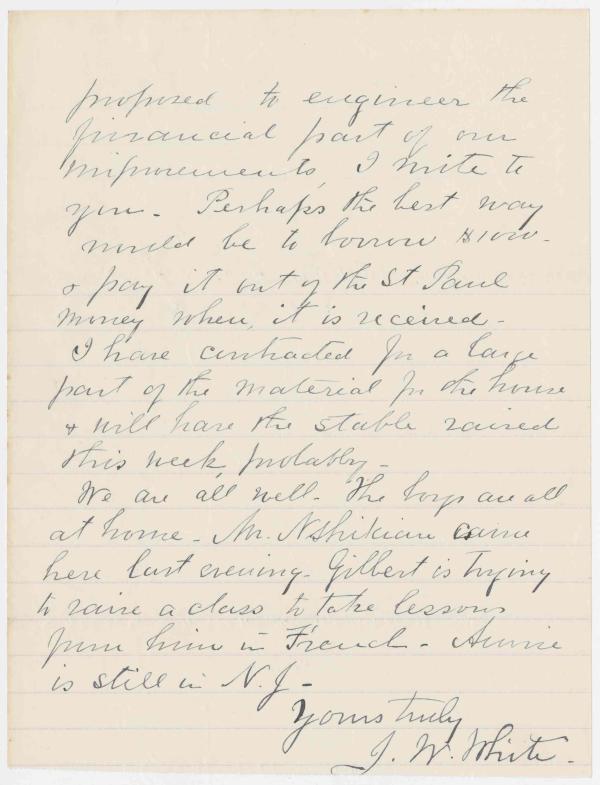 proposed to engineer the
financial part of our
improvements, I write to
you - Perhaps the best way
would be to borrow $1000 -
& pay it out of the St Paul
money when, it is received -
I have contracted for a large
part of the material for the house
& will have the stable raised
this week, probably -
We are all well - The boys are all
at home - Mr. Nshikian came
here last evening - Gilbert is trying
to raise a class to take lessons
from him in French - Annie
is still in N. J -
Yours truly
J. W. White -